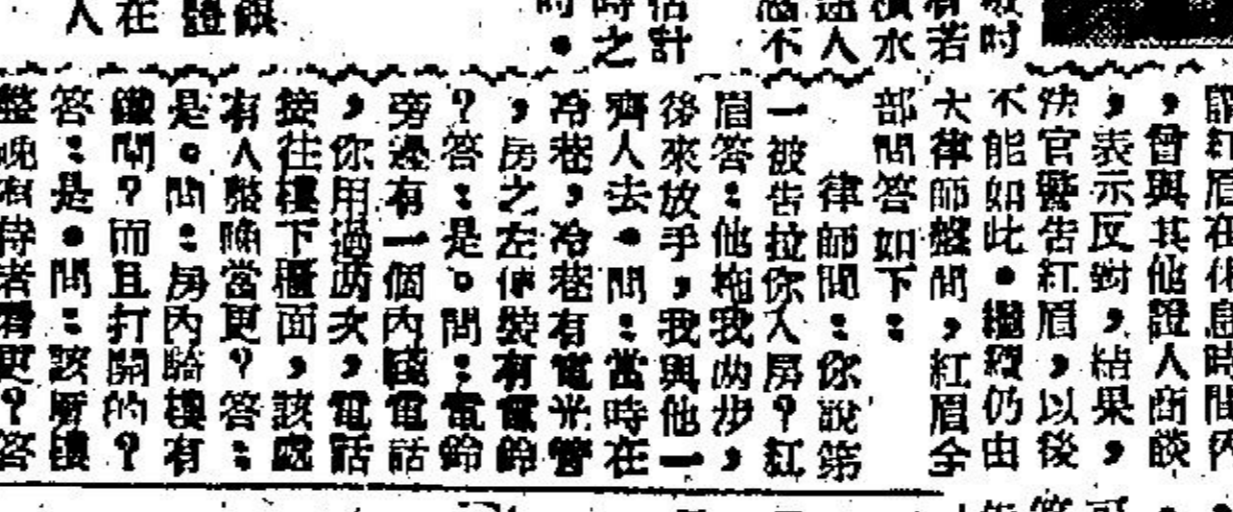 謂紅眉在休息時間内
，曾與其他證人商談
，表示反對，結果，
法官警告紅眉，以後
不能如此。繼續仍由
大律師盤問，紅眉全
部問答如下：
律師問：你說第
一被告拉你入房？紅
眉答：他拖我两步，
後來放手，我與他一
齊人去。問：當時在
冷巷，冷巷有電光管
，房之左便裝有電鈴
？答：是。問：電鈴
旁邊有一個内綫電話
，你用過两次，電話
接往樓下櫃面，該處
有人整晚當更？答：
是。問：房内騎樓有
鐵閘？而且打開的？
答：是。問：該騎樓
整晚有侍者看更？答